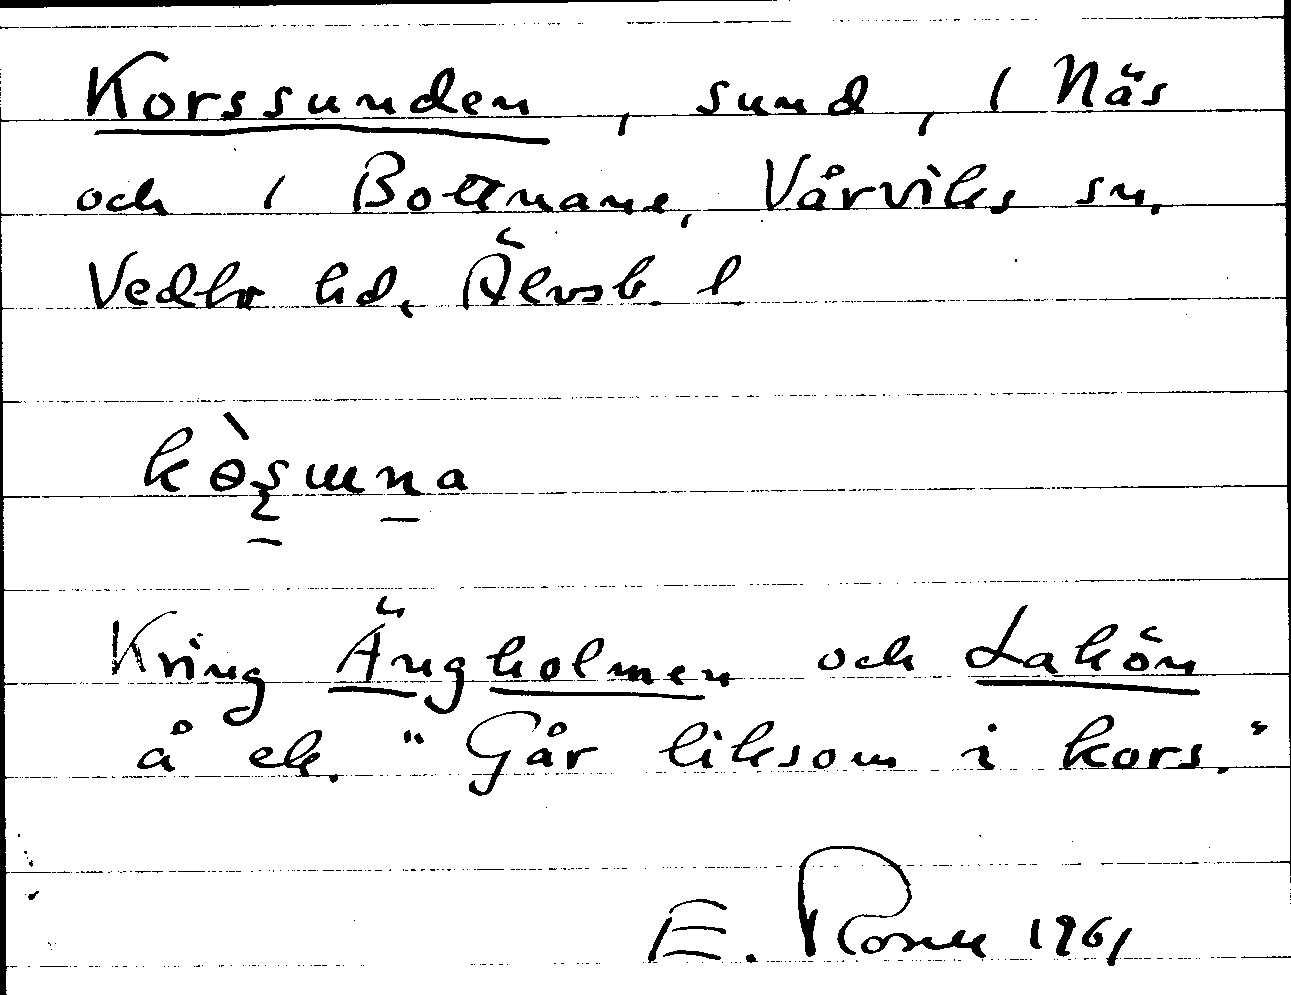 Korssunden, sund, i Näs
och i Bottnane, Vårviks sn.
Vedbo hd. Älvsb. l
Kring Ängholmen och Lakön
å ek. "Går liksom i kors."
E. 1961